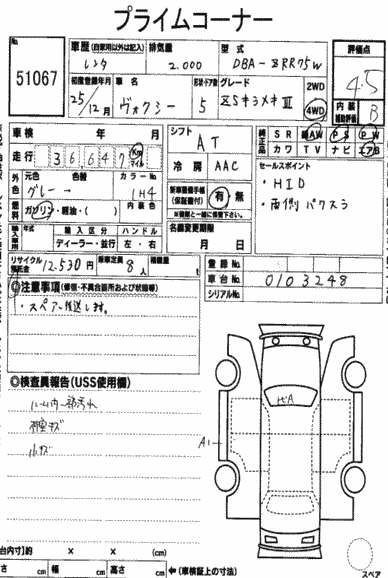 プライムコーナー
No.
51067
車歴 (自家用以外は記入) レンタ
排気量 2.000
型式 DBA-ZRR75W
評価点 4.5
初度登録年月 25年12月
車名 ヴォクシー
形状・ドア数 5
グレード ZSキラメキⅢ
2WD
4WD
内装補助評価 B
車検 年 月
走行 36647 Km マイル
シフト AT
冷房 AAC
純正品 SR AW PS PW
カワ TV ナビ エアB
外装 元色 グレー→ 色替
カラーNo. 1H4
燃料 ガソリン・軽油・( )
内装色
新車整備手帳(保証書付) 有 無
※書類と一緒に保管下さい。
セールスポイント
・HID
・両側パワスラ
輸入車 年式
輸入区分 ディーラー・並行
ハンドル 左・右
名義変更期限 月 日
リサイクル預託金 12.530円
乗車定員 8人
積載量 t
登録No.
車台No. 0103248
シリアルNo.
◎注意事項(修復・不具合箇所および状態等)
・スペアー搬送します。
◎検査員報告(USS使用欄)
ルーム内一部汚れ
小キズ
A1
スペア
(荷台内寸)約 × × (cm)
長さ cm 幅 cm 高さ cm ←(車検証上の寸法)